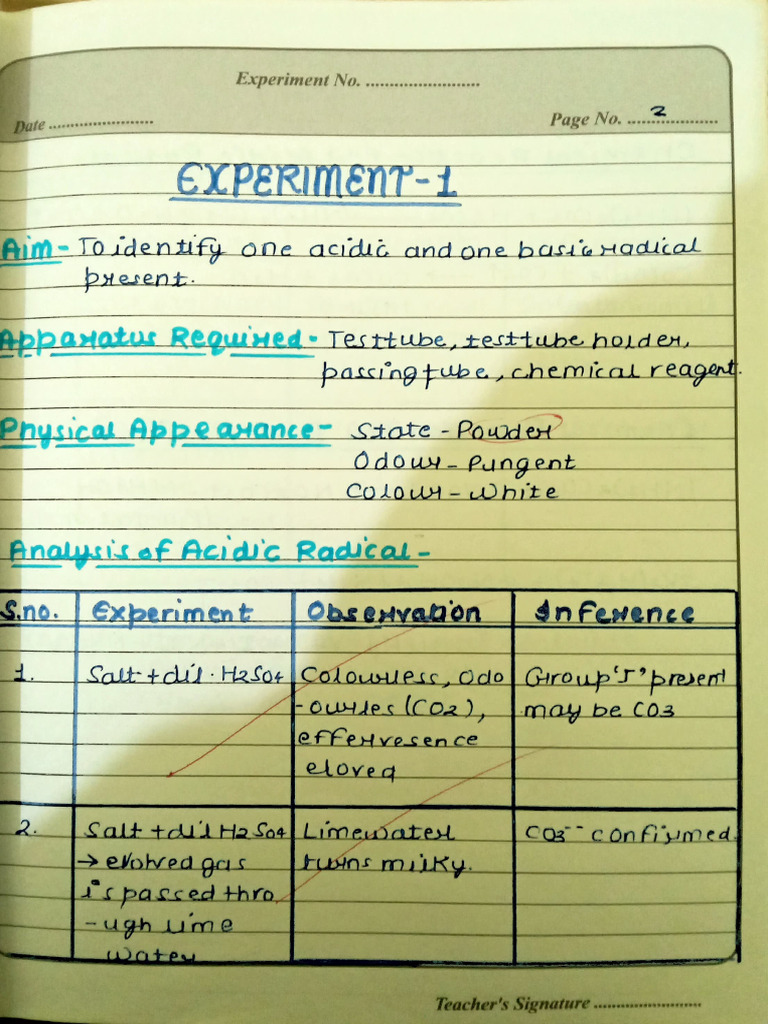 Experiment No. ........................
Date ......................
Page No. 2
EXPERIMENT-1
Aim - To identify one acidic and one basic radical
present.
Apparatus Required - Testtube, testtube holder,
passing tube, chemical reagent.
Physical Appearance - State - Powder
Odour - Pungent
Colour - White
Analysis of Acidic Radical -
S.no. Experiment Observation Inference
1. Salt + dil. H2SO4 Colourless, Odo Group 'I' present
-ourles (CO2), may be CO3
effervesence
eloved
2. Salt + dil H2SO4 Limewater CO3-- confirmed.
→ evolved gas turns milky.
is passed thro
-ugh lime
water
Teacher's Signature ........................